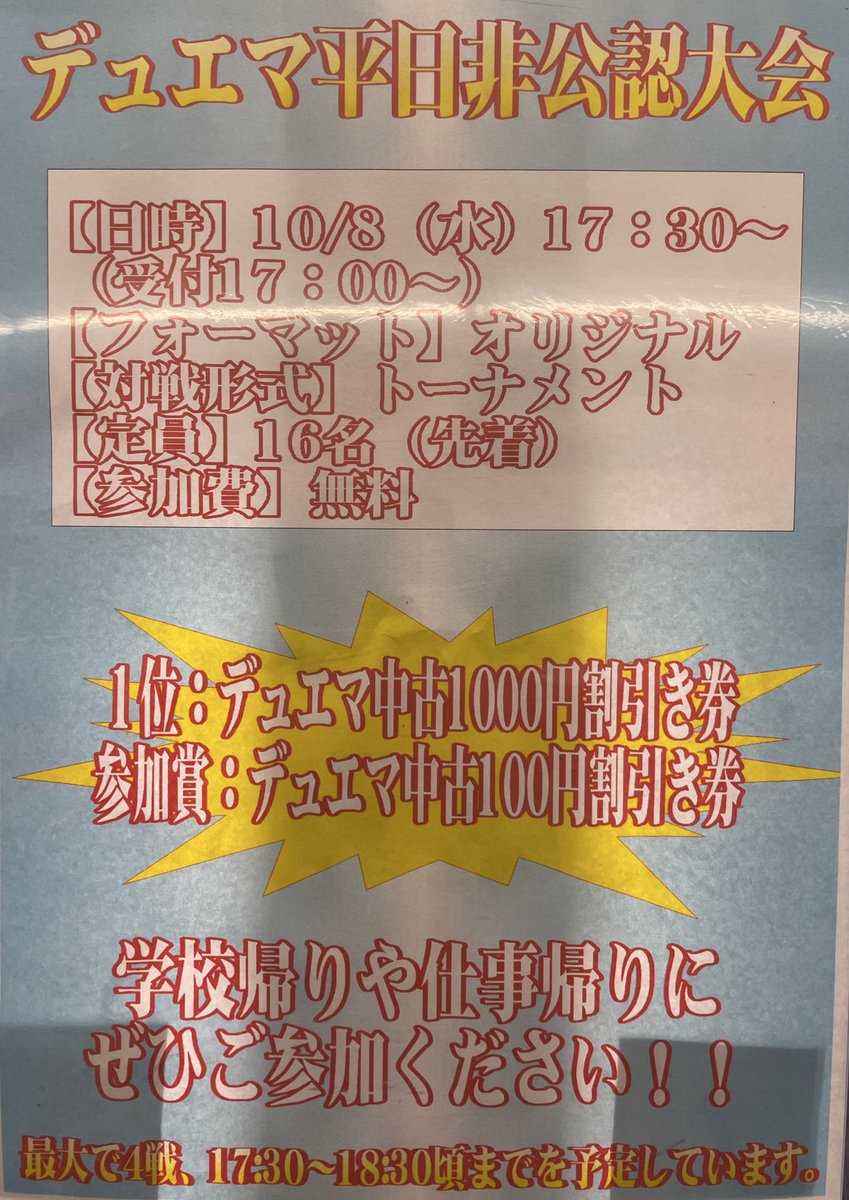 デュエマ平日非公認大会
【日時】10/8（水）17：30～
（受付17：00～）
【フォーマット】オリジナル
【対戦形式】トーナメント
【定員】16名（先着）
【参加費】無料
1位：デュエマ中古1000円割引き券
参加賞：デュエマ中古100円割引き券
学校帰りや仕事帰りに
ぜひご参加ください！！
最大で4戦、17:30～18:30頃までを予定しています。